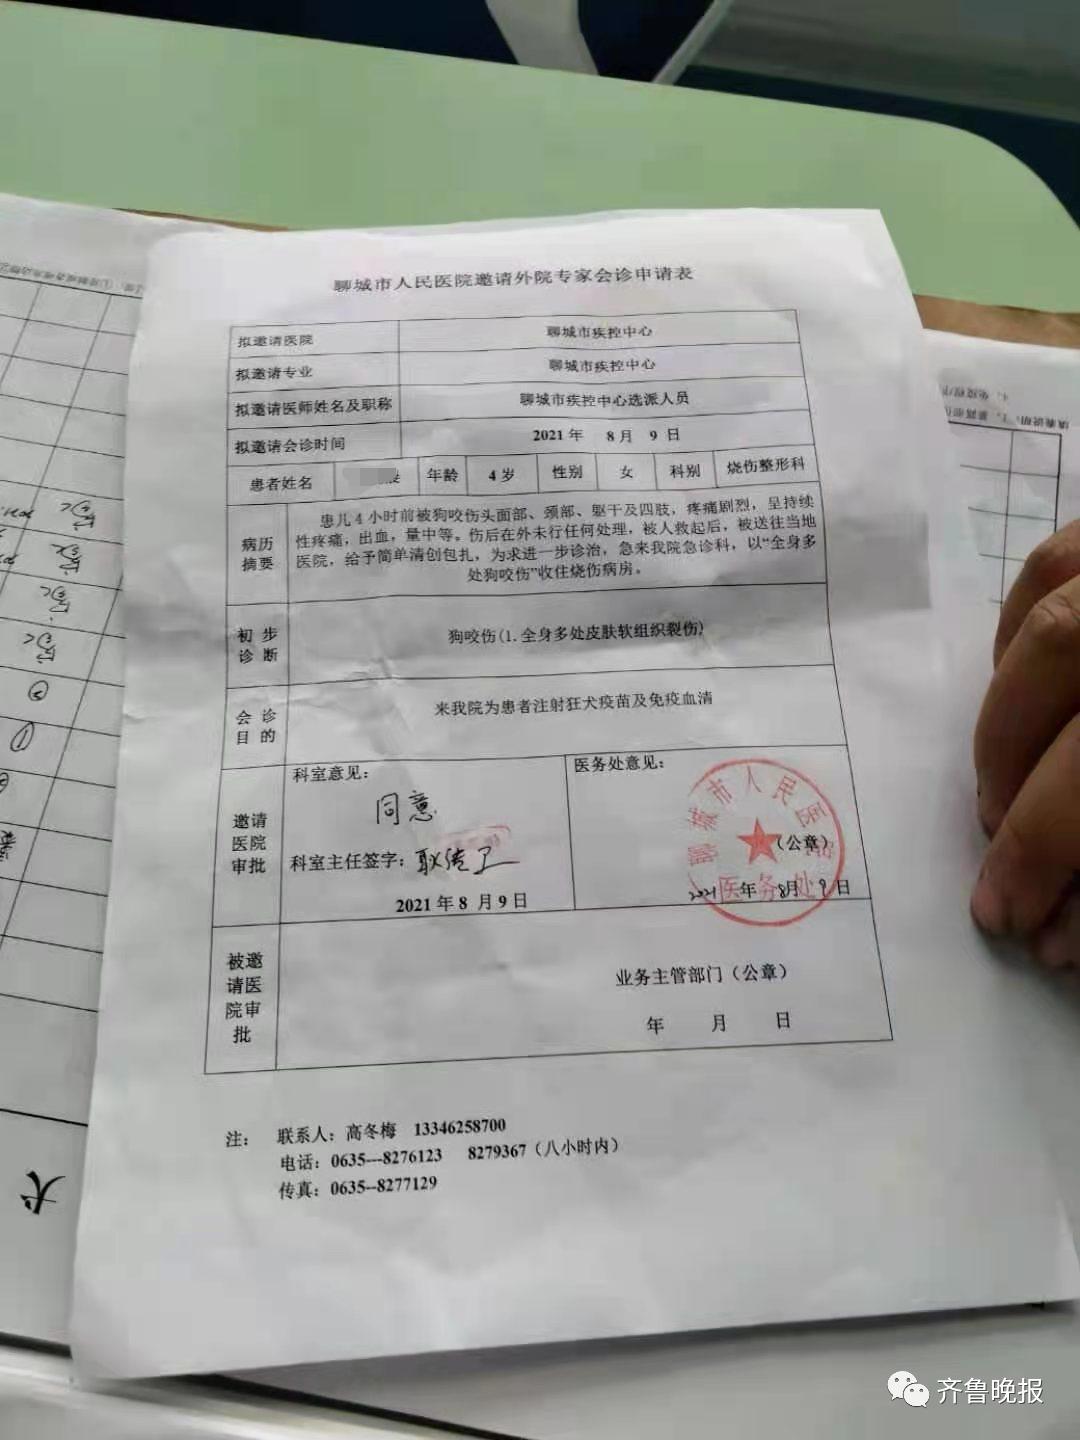 聊城市人民医院邀请外院专家会诊申请表
拟邀请医院 聊城市疾控中心
拟邀请专业 聊城市疾控中心
拟邀请医师姓名及职称 聊城市疾控中心选派人员
拟邀请会诊时间 2021年 8月 9日
患者姓名 年龄 4岁 性别 女 科别 烧伤整形科
病历
摘要
患儿4小时前被狗咬伤头面部、颈部、躯干及四肢,疼痛剧烈,呈持续
性疼痛,出血,量中等。伤后在外未行任何处理,被人救起后,被送往当地
医院,给予简单清创包扎,为求进一步诊治,急来我院急诊科,以“全身多
处狗咬伤”收住烧伤病房。
初步
诊断
狗咬伤(1.全身多处皮肤软组织裂伤)
会诊
目的
来我院为患者注射狂犬疫苗及免疫血清
邀请
医院
审批
科室意见:
同意
科室主任签字:
2021年8月9日
医务处意见:
聊城市人民医院
(公章)
医务处
2021年8月9日
被邀
请医
院审
批
业务主管部门(公章)
年 月 日
注: 联系人:高冬梅 13346258700
电话:0635---8276123 8279367(八小时内)
传真:0635--8277129
犬
齐鲁晚报